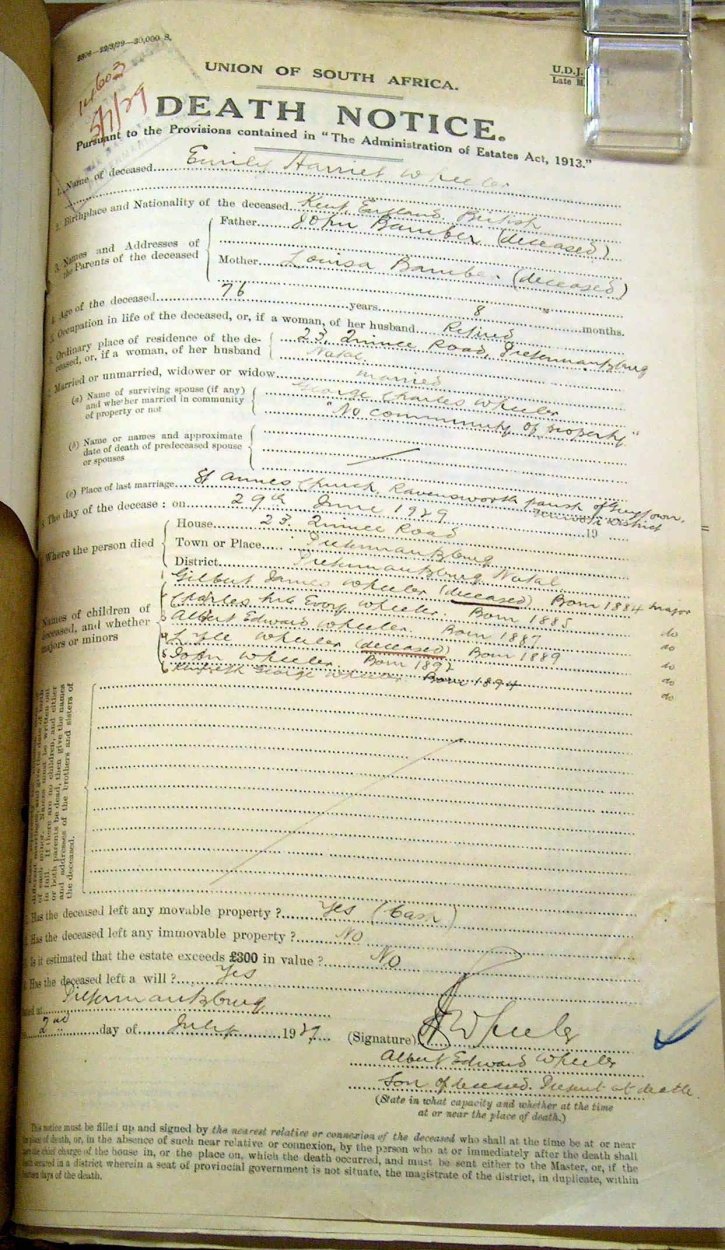 2306—22/3/29—30,000 S.
14603
5/7/29
U.D.J.
UNION OF SOUTH AFRICA.
DEATH NOTICE.
Pursuant to the Provisions contained in "The Administration of Estates Act, 1913."
1. Name of deceased Emily Harriet Wheeler
2. Birthplace and Nationality of the deceased Kent, England, British
3. Names and Addresses of the Parents of the deceased
Father John Bamber (deceased)
Mother Louisa Bamber (deceased)
4. Age of the deceased 76 years 8 months.
5. Occupation in life of the deceased, or, if a woman, of her husband Retired
6. Ordinary place of residence of the deceased, or, if a woman, of her husband
23, Road, Pietermaritzburg
Natal
7. Married or unmarried, widower or widow married
(a) Name of surviving spouse (if any) and whether married in community of property or not
George Charles Wheeler
"No community of property"
(b) Name or names and approximate date of death of predeceased spouse or spouses
(c) Place of last marriage St Annes Church, Ravensworth parish of Greytown, District
8. The day of the decease: on 29th June 1929 19
Where the person died
House 23, Road
Town or Place Pietermaritzburg
District Pietermaritzburg Natal
Names of children of deceased, and whether majors or minors
1 Gilbert James Wheeler (deceased) Born 1884 major
2 Charles Wheeler. Born 1885 do
3 Albert Edward Wheeler. Born 1887 do
4 Wheeler (deceased) Born 1889
5 John Wheeler Born 1892 do
6 George Wheeler Born 1894 do
in full. If there are no children, and either
or both parents be dead, then give the names
and addresses of the brothers and sisters of
the deceased.
Has the deceased left any movable property? Yes (Cash)
Has the deceased left any immovable property? No
Is it estimated that the estate exceeds £300 in value? No
Has the deceased left a will? Yes
Dated at Pietermaritzburg
2nd day of July 1929
(Signature) Wheeler
Albert Edward Wheeler
Son of deceased. Present at death.
(State in what capacity and whether at the time
at or near the place of death.)
This notice must be filled up and signed by the nearest relative or connexion of the deceased who shall at the time be at or near
the place of death, or, in the absence of such near relative or connexion, by the person who at or immediately after the death shall
have the chief charge of the house in, or the place on, which the death occurred, and must be sent either to the Master, or, if the
death occurred in a district wherein a seat of provincial government is not situate, the magistrate of the district, in duplicate, within
fourteen days of the death.